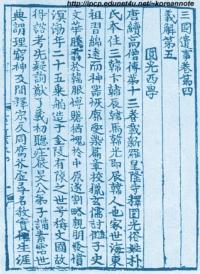 http://incp.edunet4u.net/~koreannote
三國遺事卷第四
義解第五
圓光西學
唐續高僧傳第十三卷載新羅皇隆寺釋圓光俗姓朴
氏本住三韓卞韓辰韓馬韓光即辰韓人也家世海東
祖習綿遠而神器恢廓愛染篇章校獵玄儒討讎子史
文華騰翥於韓服博贍猶愧於中原遂割略親朋發憤
溟渤年二十五乘舶造于金陵有陳之世號稱文國故
得諮考先疑詢猷了義初聽莊嚴旻公弟子講素霑世
典謂理窮神及聞釋宗反同腐芥虛尋名教實懼生涯